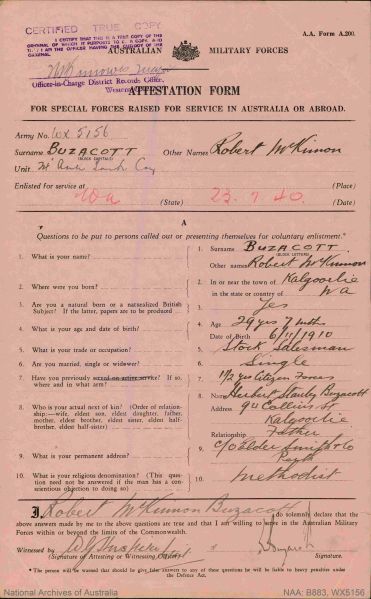 CERTIFIED TRUE COPY
I CERTIFY THAT THIS IS A TRUE COPY OF THE
ORIGINAL OF WHICH IT PURPORTS TO BE A COPY, AND
THAT I AM THE OFFICER HAVING THE CUSTODY OF THE
ORIGINAL
A.A. Form A.200.
AUSTRALIAN MILITARY FORCES
Officer-in-Charge District Records Office,
ATTESTATION FORM
FOR SPECIAL FORCES RAISED FOR SERVICE IN AUSTRALIA OR ABROAD.
Army No. WX 5156
Surname BUZACOTT Other Names Robert McKinnon
(BLOCK CAPITALS)
Unit
Enlisted for service at (Place)
Wa (State) 23.7.40. (Date)
A
Questions to be put to persons called out or presenting themselves for voluntary enlistment.
1. What is your name? 1. Surname BUZACOTT
(BLOCK LETTERS)
Other names Robert McKinnon
2. Where were you born? 2. In or near the town of Kalgoorlie
in the state or country of WA
3. Are you a natural born or naturalized British Subject? If the latter, papers are to be produced 3. Yes
4. What is your age and date of birth? 4. Age 29 yrs 7 mths
Date of Birth 6/11/1910
5. What is your trade or occupation? 5. Stock Salesman
6. Are you married, single or widower? 6. Single
7. Have you previously served on active service? If so, where and in what arm? 7. 1 1/2 yrs Citizen Forces
8. Who is your actual next of kin? (Order of relationship:—wife, eldest son, eldest daughter, father, mother, eldest brother, eldest sister, eldest half-brother, eldest half-sister) 8. Name Herbert Stanley Buzacott
Address 94 Collins St
Kalgoorlie
Relationship Father
9. What is your permanent address? 9. C/o Elder Smith & Co
Perth
10. What is your religious denomination? (This question need not be answered if the man has a conscientious objection to doing so) 10. Methodist
I, Robert McKinnon Buzacott do solemnly declare that the
above answers made by me to the above questions are true and that I am willing to serve in the Australian Military
Forces within or beyond the limits of the Commonwealth.
Witnessed by
(Signature of Attesting or Witnessing Officer) Signature.
* The person will be warned that should he give false answers to any of these questions he will be liable to heavy penalties under
the Defence Act.
National Archives of Australia
NAA: B883, WX5156